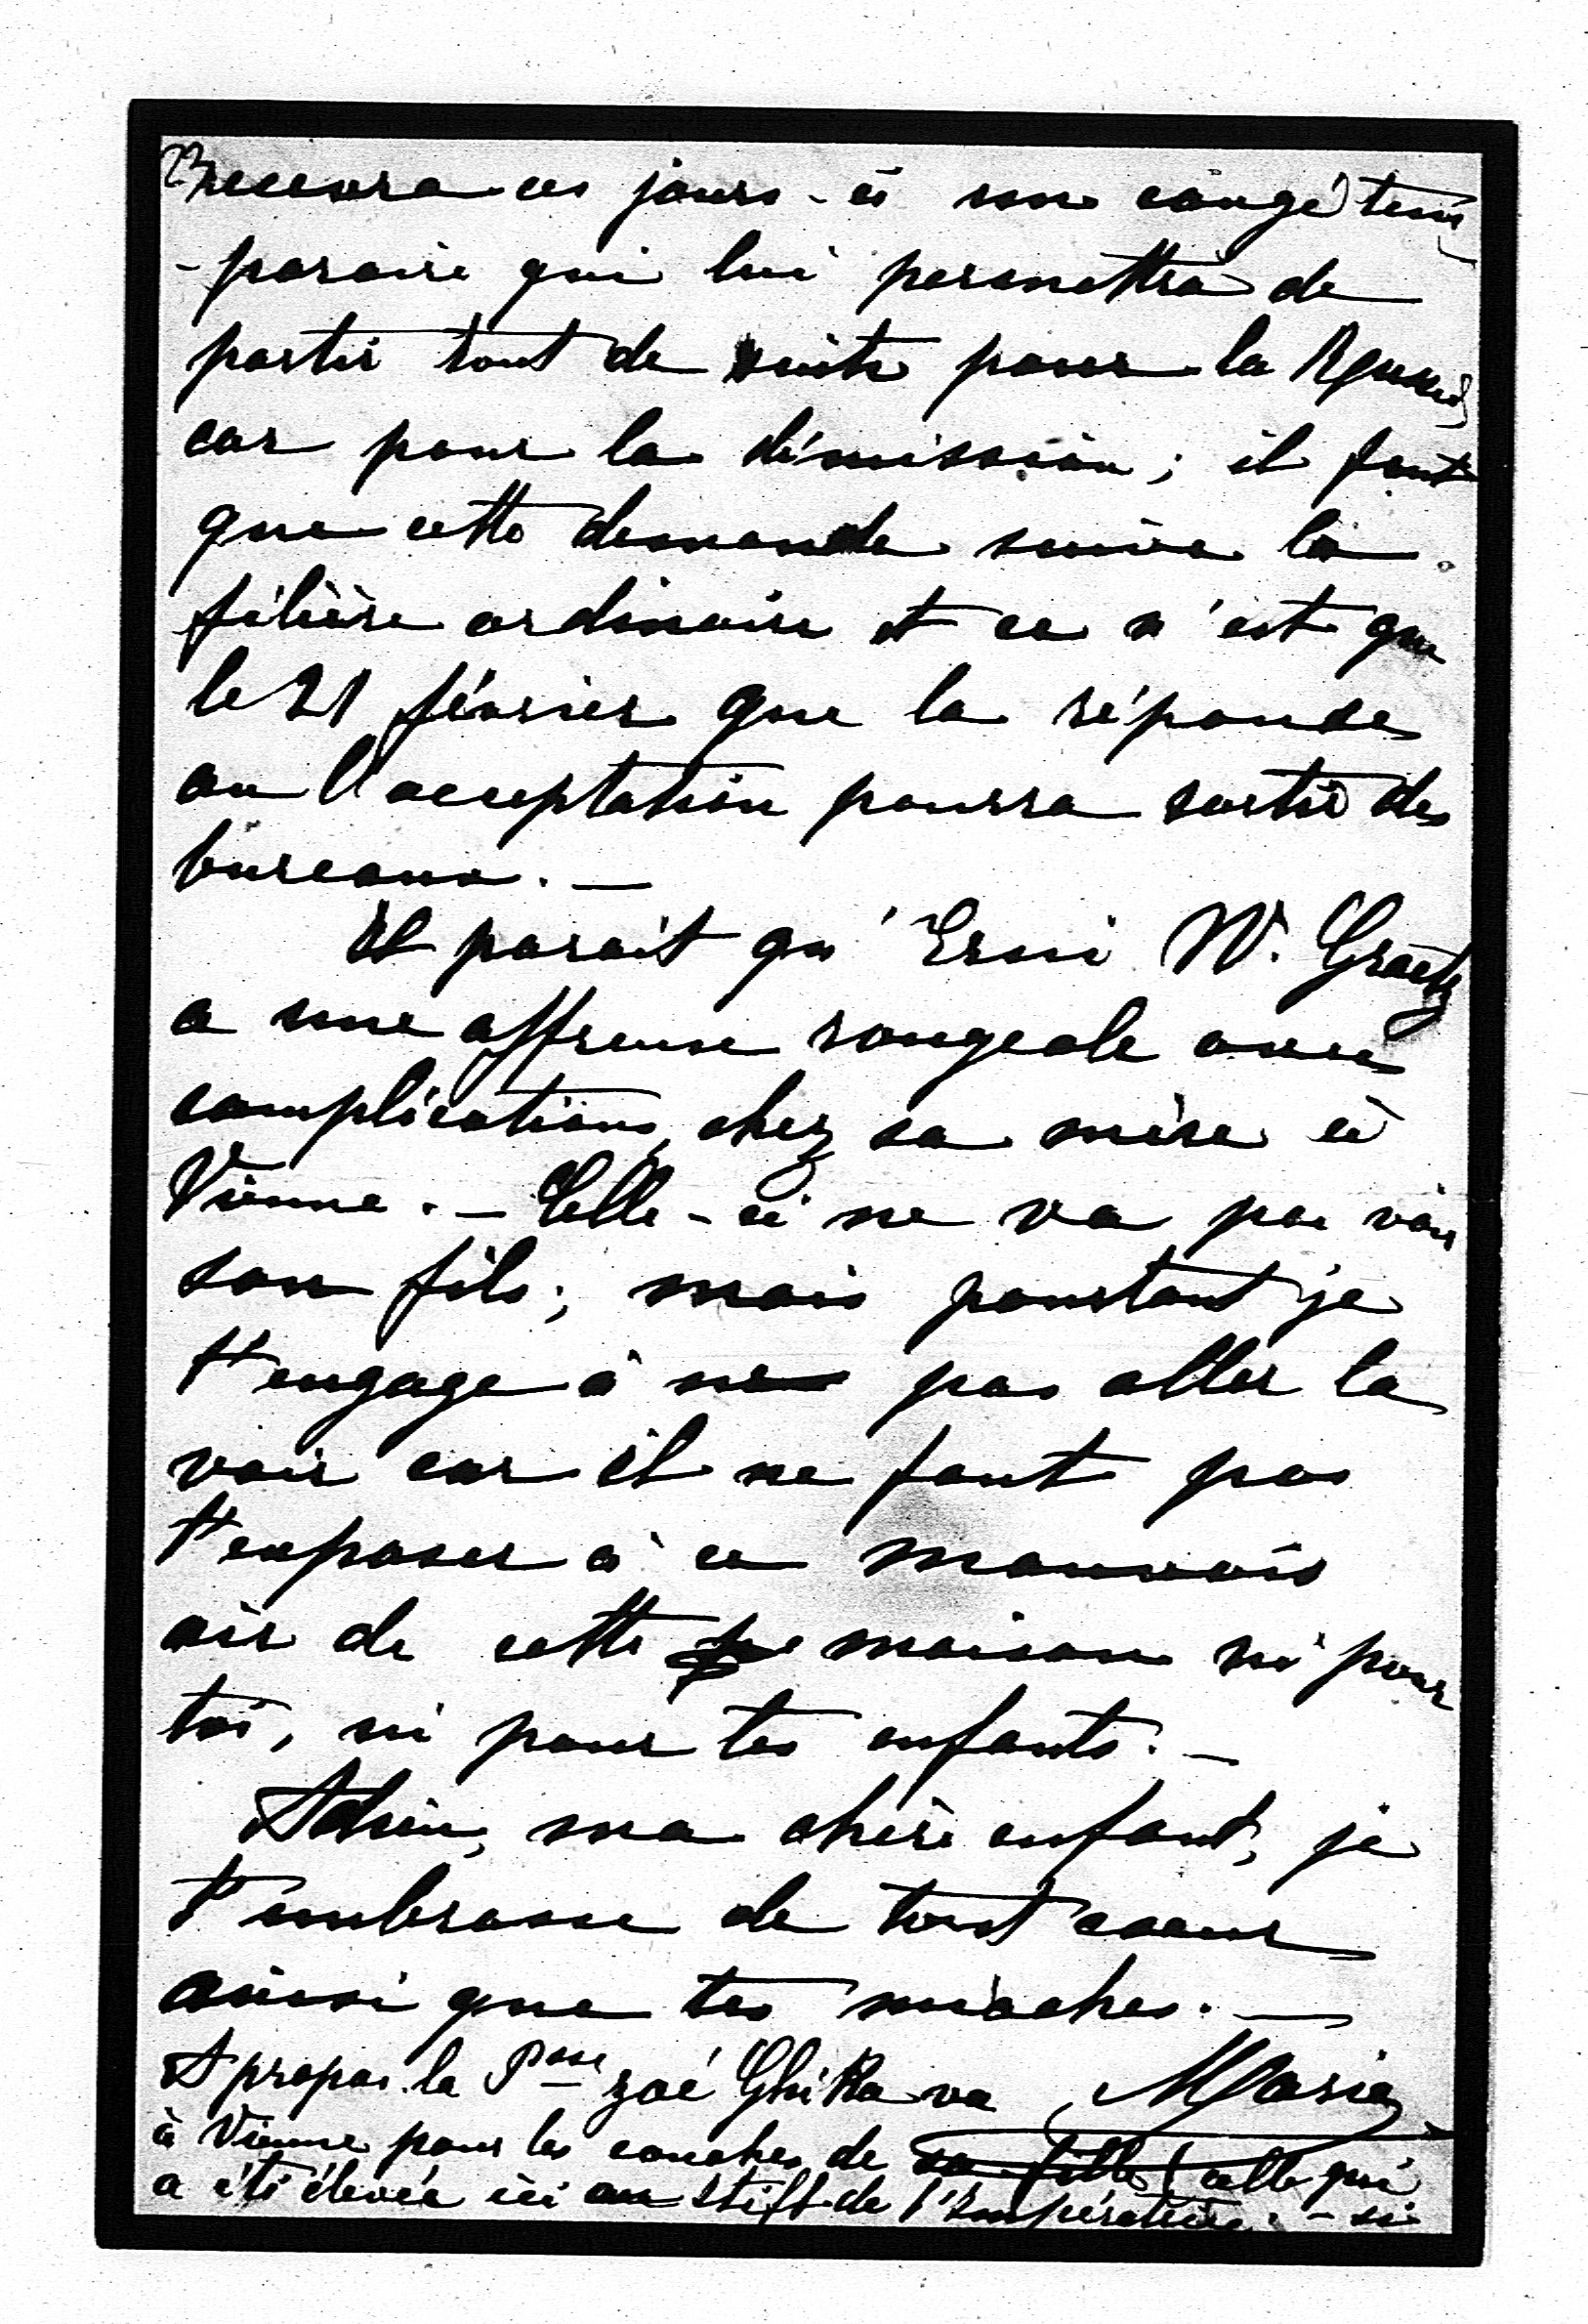 recevra ces jours-ci un congé tem
-poraire qui lui permettra de
partir tout de suite pour la
car pour la démission; il faut
que cette demande suive la
filière ordinaire et ce n'est que
le 21 février que la réponse
ou l'acceptation pourra sortir des
bureaux. —
Il parait qu'Erni W. Graetz
a une affreuse rougeole avec
complications, chez sa mère à
Vienne. — Celle-ci ne va pas voir
son fils; mais pourtant je
t'engage à ne pas aller la
voir car il ne faut pas
t'exposer à ce mauvais
air de cette maison ni pour
toi, ni pour tes enfants. —
Adieu, ma chère enfant, je
t'embrasse de tout coeur
ainsi que tes mioches. —
A propos la Psse Zoé Ghika va Marie
à Vienne pour les couches de sa fille (celle qui
a été élevée ici au Stift de l'Impératrice. — si